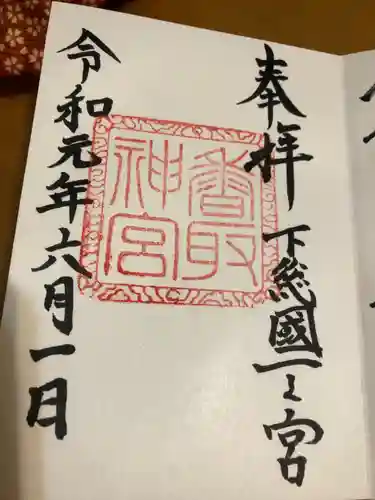 奉拝 下総國一之宮
香取
神宮
令和元年六月一日